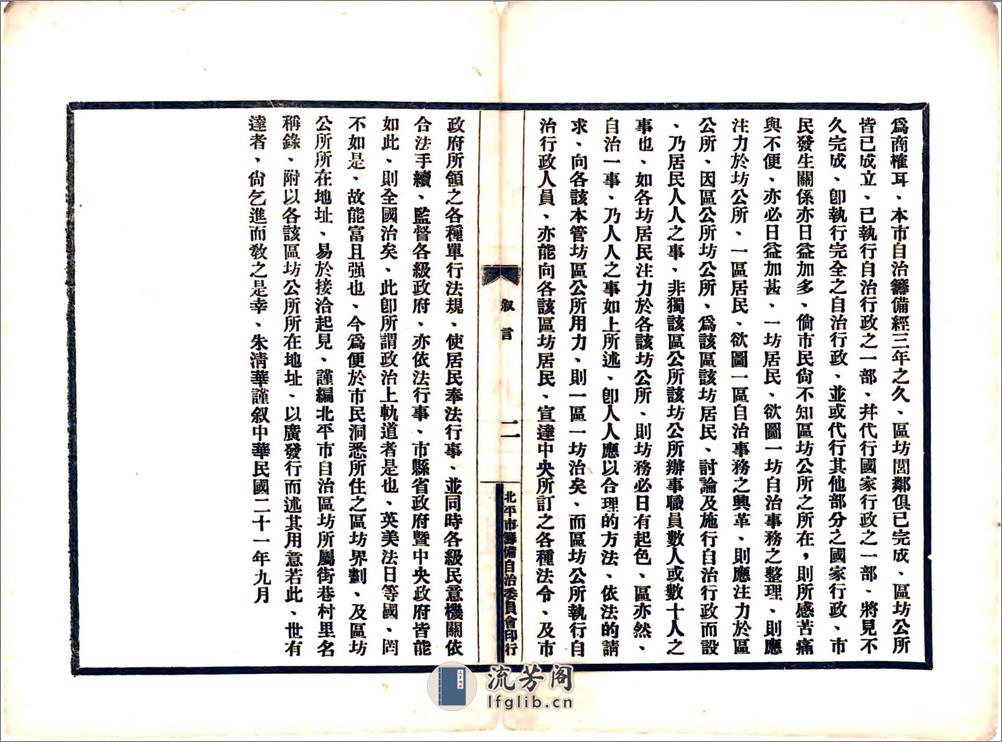 爲商榷耳、本市自治籌備經三年之久、區坊閭鄰俱已完成、區坊公所
皆已成立、已執行自治行政之一部、幷代行國家行政之一部、將見不
久完成、卽執行完全之自治行政、並或代行其他部分之國家行政、市
民發生關係亦日益加多、倘市民尙不知區坊公所之所在，則所感苦痛
與不便、亦必日益加甚、一坊居民、欲圖一坊自治事務之整理、則應
注力於坊公所、一區居民、欲圖一區自治事務之興革、則應注力於區
公所、因區公所坊公所、爲該區該坊居民、討論及施行自治行政而設
、乃居民人人之事、非獨該區公所該坊公所辦事職員數人或數十人之
事也、如各坊居民注力於各該坊公所、則坊務必日有起色、區亦然、
自治一事、乃人人之事如上所述、卽人人應以合理的方法、依法的請
求、向各該本管坊區公所用力、則一區一坊治矣、而區坊公所執行自
治行政人員、亦能向各該區坊居民、宣達中央所訂之各種法令、及市
叙言
二
北平市籌備自治委員會印行
政府所領之各種單行法規、使居民奉法行事、並同時各級民意機關依
合法手續、監督各級政府、亦依法行事、市縣省政府暨中央政府皆能
如此、則全國治矣、此卽所謂政治上軌道者是也、英美法日等國、罔
不如是、故能富且强也、今爲便於市民洞悉所住之區坊界劃、及區坊
公所所在地址、易於接洽起見、謹編北平市自治區坊所屬街巷村里名
稱錄、附以各該區坊公所所在地址、以廣發行而述其用意若此、世有
達者、尙乞進而敎之是幸、朱淸華謹叙中華民國二十一年九月
流芳阁
lfglib.cn